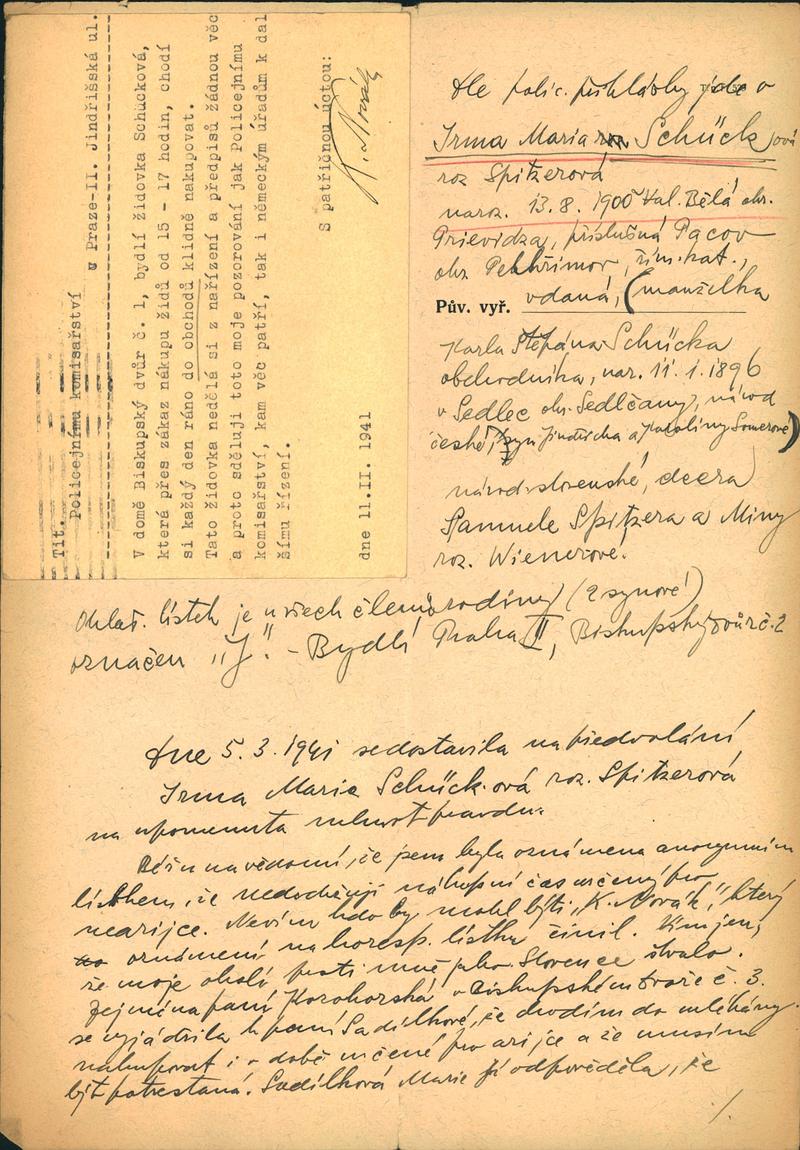 Tit.
Policejnímu komisařství
v Praze-II. Jindřišská ul.
V domě Biskupský dvůr č. 1, bydlí židovka Schücková,
která přes zákaz nákupu židů od 15 - 17 hodin, chodí
si každý den ráno do obchodů klidně nakupovat.
Tato židovka nedělá si z nařízení a předpisů žádnou věc
a proto sděluji toto moje pozorování jak Policejnímu
komisařství, kam věc patří, tak i německým úřadům k dal
šímu řízení.
S patřičnou úctou:
K. Novák
dne 11.II. 1941
Dle polic. přihlášky jde o
Irma Maria Schück ová
roz Spitzerová
naroz. 13.8. 1900 Val. Bělá okr.
Prievidza, příslušná Pacov
okr. Pelhřimov, řím. kat.,
Pův. vyř. vdaná, (manželka
Karla Štěpána Schücka
obchodníka, nar. 11. 1. 1896
v Sedlec okr. Sedlčany, národ
české, syn Jindřicha a Karolíny Somerové)
národ. slovenské, dcera
Samuele Spitzera a Miny
roz. Wienerové.
Ohlaš. lístek je u všech členů rodiny (2 synové)
označen „J". - Bydlí Praha II, Biskupský dvůr č. 2
Dne 5.3.1941 se dostavila na předvolání
Irma Marie Schück.ová roz. Spitzerová
na upomenuta mluvit pravdu.
Běru na vědomí, že jsem byla oznámena anonymním
lístkem, že nedodržuji nákupní čas určený pro
nearijce. Nevím kdo by mohl býti „K. Novák", který
oznámení na koresp. lístku činil. Vím jen,
že moje okolí proti mně jako Slovence štvalo.
Zejména paní Korohorská v Biskupském dvoře č. 3.
se vyjádřila k paní Sadílkové, že chodím do mlékárny
nakupovat i v době určené pro arijce a že musím
být potrestaná. Sadílková Marie jí odpověděla, že
./.